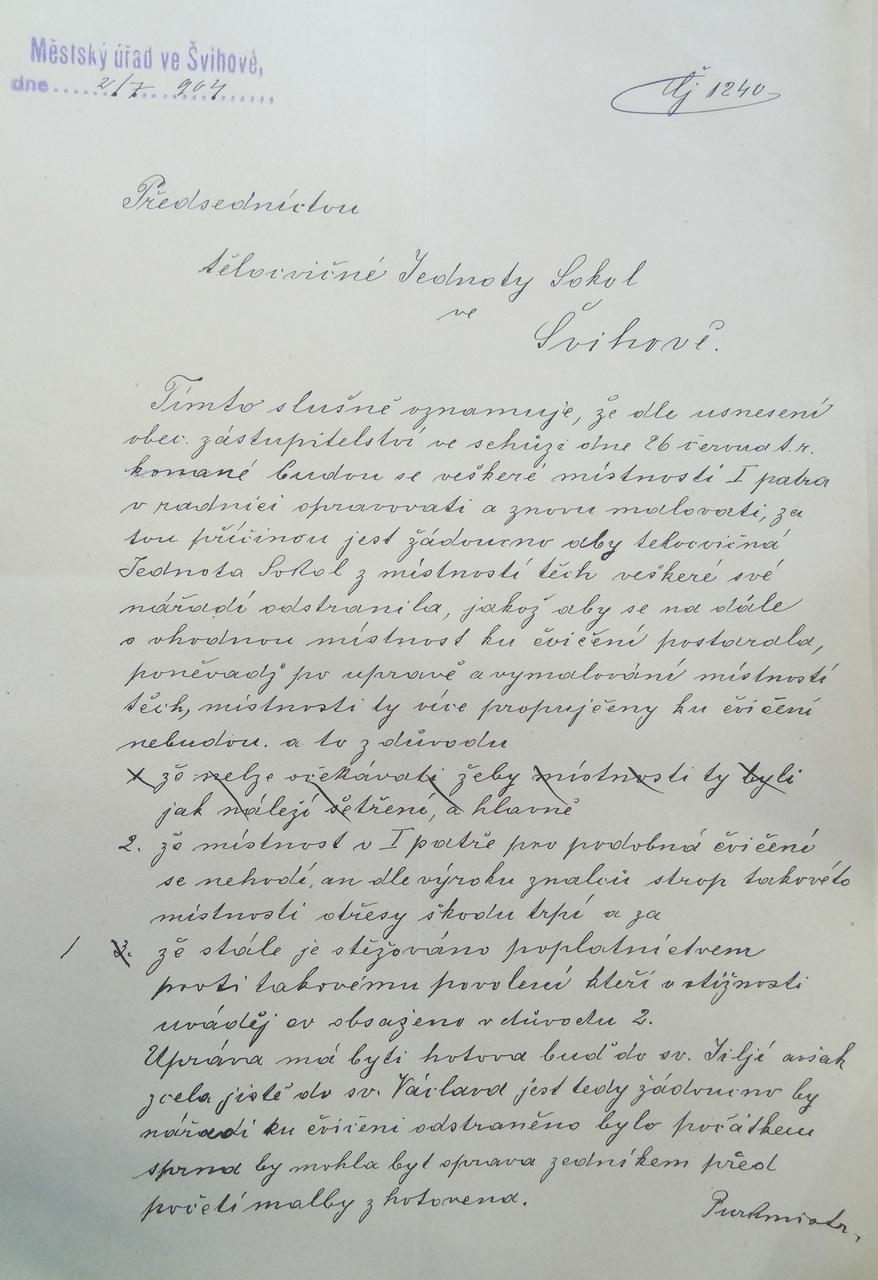 Městský úřad ve Švihově,
dne 2/7 904
Čj 1240
Předsednictvu
tělocvičné Jednoty Sokol
ve
Švihově.
Tímto slušně oznamuje, že dle usnesení
obec. zástupitelství ve schůzi dne 26 června t.r.
konané budou se veškeré místnosti I patra
v radnici opravovati a znovu malovati, za
tou příčinou jest žádoucno aby tělocvičná
Jednota Sokol z místností těch veškeré své
nářadí odstranila, jakož aby se na dále
o vhodnou místnost ku cvičení postarala,
poněvadž po upravě a vymalování místností
těch, místnosti ty více propujčeny ku cvičení
nebudou. a to z důvodu
že nelze očekávati žeby místnosti ty byli
jak náleží šetření, a hlavně
2. že místnost v I patře pro podobná cvičení
se nehodí, an dle výroku znalců strop takovéto
místnosti otřesy škodu trpí a za
1 3. že stále je stěžováno poplatnictvem
proti takovému povolení kteří v stížnosti
uváděj co obsaženo v důvodu 2.
Upráva má byti hotova buď do sv. Jiljí avšak
zcela jistě do sv. Václava jest tedy žádoucno by
nářadí ku cvičení odstraněno bylo počátkem
srpna by mohla byt oprava zedníkem před
početí malby zhotovena.
Purkmistr,